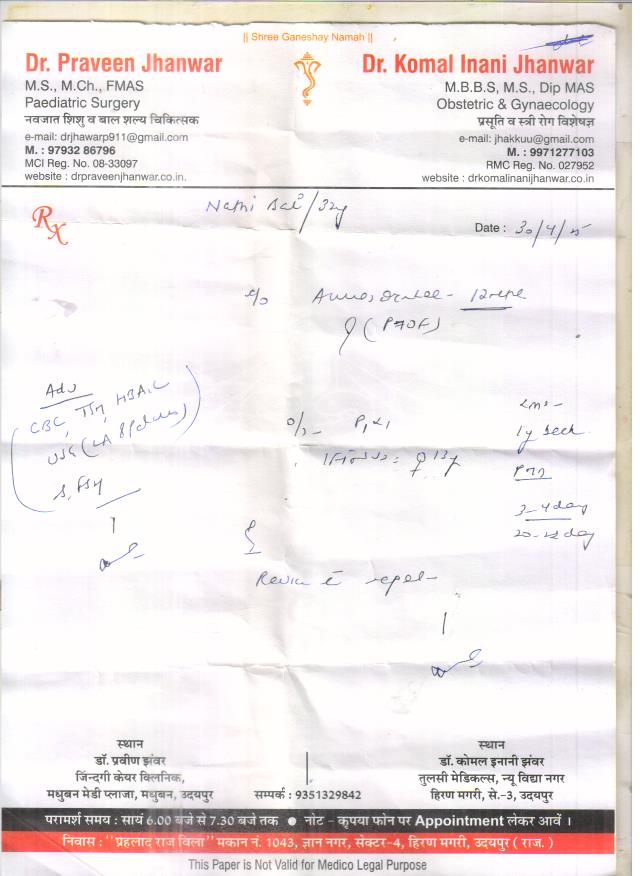 || Shree Ganeshay Namah ||
Dr. Praveen Jhanwar
M.S., M.Ch., FMAS
Paediatric Surgery
नवजात शिशु व बाल शल्य चिकित्सक
e-mail: drjhawarp911@gmail.com
M. : 97932 86796
MCI Reg. No. 08-33097
website : drpraveenjhanwar.co.in.
Dr. Komal Inani Jhanwar
M.B.B.S, M.S., Dip MAS
Obstetric & Gynaecology
प्रसूति व स्त्री रोग विशेषज्ञ
e-mail: jhakkuu@gmail.com
M. : 9971277103
RMC Reg. No. 027952
website : drkomalinanijhanwar.co.in
Rx
/32y
Date : 30/4/25
c/o
Adv
CBC, TSH, HBA1C
S. FSH
o/-
3-4 day
Review c
स्थान
डॉ. प्रवीण झंवर
जिंन्दगी केयर क्लिनिक,
मधुबन मेडी प्लाजा, मधुबन, उदयपुर
सम्पर्क : 9351329842
स्थान
डॉ. कोमल इनानी झंवर
तुलसी मेडिकल्स, न्यू विद्या नगर
हिरण मगरी, से.-3, उदयपुर
परामर्श समय : सायं 6.00 बजे से 7.30 बजे तक ● नोट - कृपया फोन पर Appointment लेकर आवें ।
निवास : "प्रहलाद राज विला" मकान नं. 1043, ज्ञान नगर, सेक्टर-4, हिरण मगरी, उदयपुर ( राज. )
This Paper is Not Valid for Medico Legal Purpose